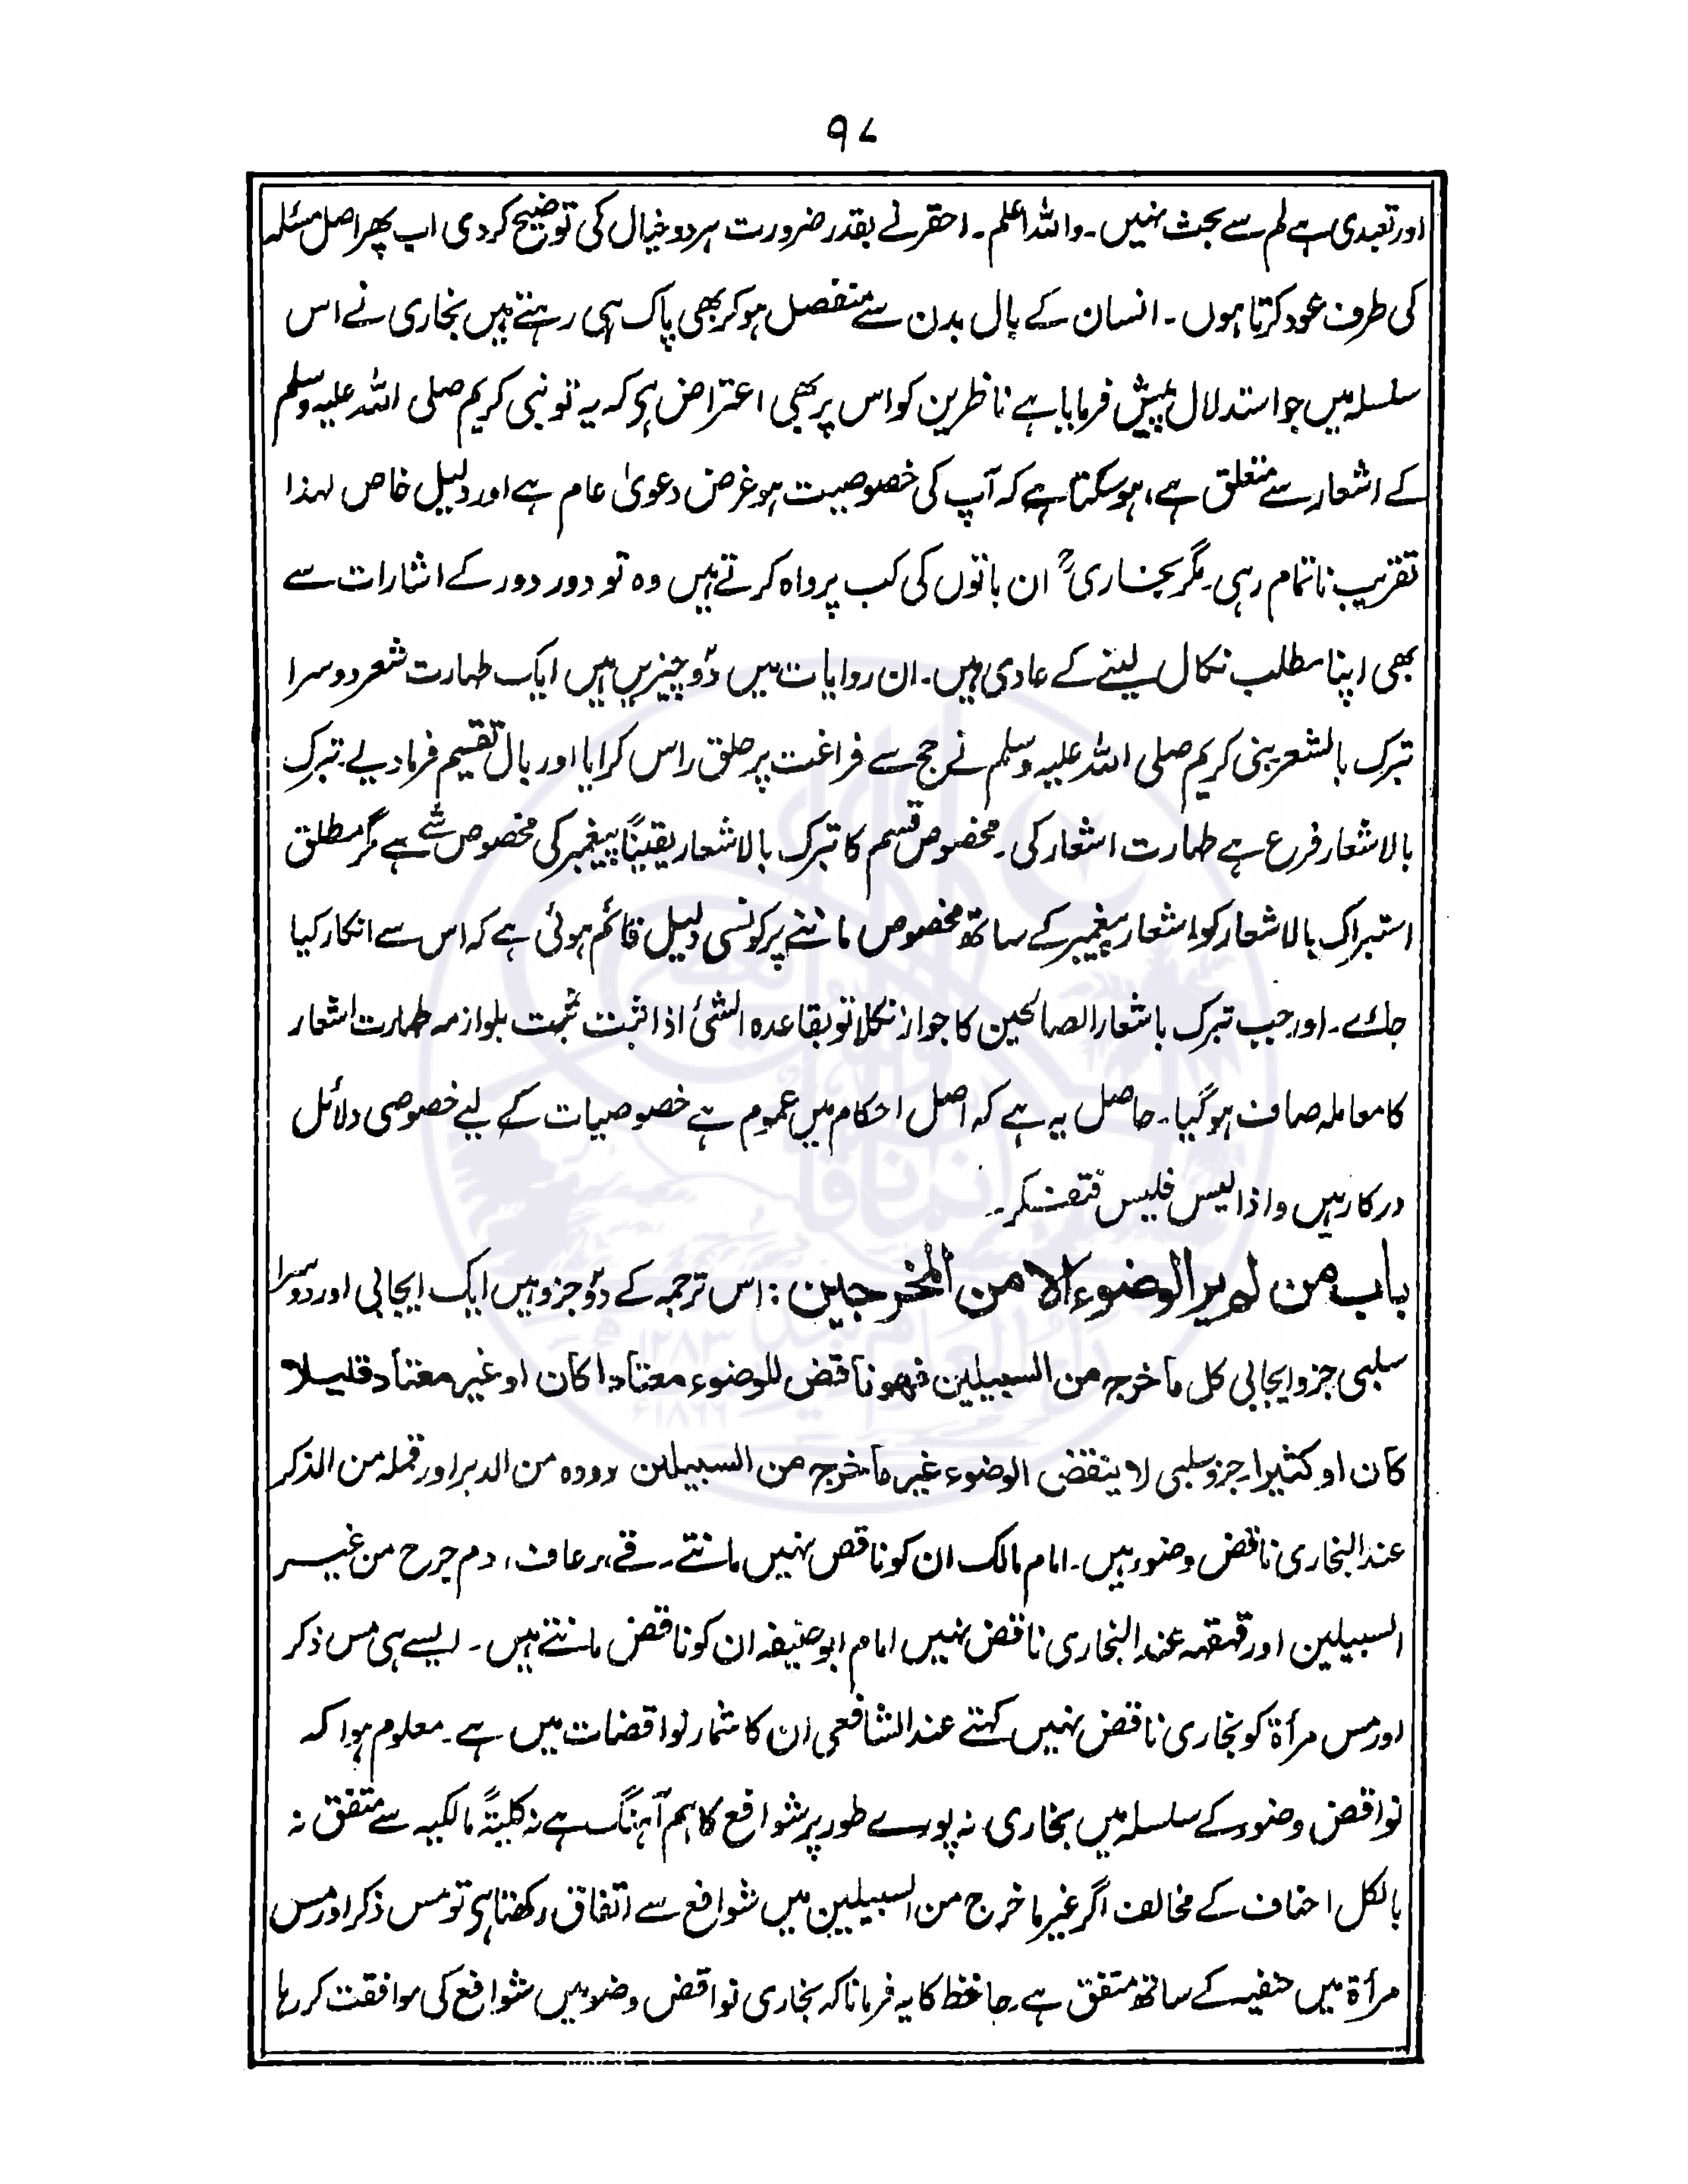 ۹۷
اور تعبدی ہے لم سے بحث نہیں۔ واللہ اعلم۔ احقر نے بقدر ضرورت ہر دو خیال کی توضیح کردی اب پھر اصل مسئلہ
کی طرف عود کرتا ہوں۔ انسان کے بال بدن سے منفصل ہو کر بھی پاک ہی رہتے ہیں بخاری نے اس
سلسلہ میں جو استدلال پیش فرمایا ہے ناظرین کو اس پر بھی اعتراض ہے کہ یہ تو نبی کریم صلی اللہ علیہ وسلم
کے اشعار سے متعلق ہے، ہو سکتا ہے کہ آپ کی خصوصیت ہو غرض دعویٰ عام ہے اور دلیل خاص لہذا
تقریب ناتمام رہی۔ مگر بخاریؒ ان باتوں کی کب پرواہ کرتے ہیں وہ تو دور دور کے اشارات سے
بھی اپنا مطلب نکال لینے کے عادی ہیں۔ ان روایات میں دو چیزیں ہیں ایک طہارت شعر دوسرا
تبرک بالشعر نبی کریم صلی اللہ علیہ وسلم نے حج سے فراغت پر حلق راس کرایا اور بال تقسیم فرمادیے۔ تبرک
بالاشعار فرع ہے طہارت اشعار کی۔ مخصوص قسم کا تبرک بالاشعار یقیناً پیغمبر کی مخصوص شے ہے مگر مطلق
استبراک بالاشعار کو اشعار پیغمبر کے ساتھ مخصوص ماننے پر کونسی دلیل قائم ہوئی ہے کہ اس سے انکار کیا
جائے۔ اور جب تبرک باشعار الصالحین کا جواز نکلا تو بقاعدہ الشئ اذا ثبت ثبت بلوازمہ طہارت اشعار
کا معاملہ صاف ہو گیا۔ حاصل یہ ہے کہ اصل احکام میں عموم ہے خصوصیات کے لیے خصوصی دلائل
درکار ہیں واذا لیس فلیس فتفکر۔
باب من لم یر الوضوء الا من المخرجین: اس ترجمہ کے دو جزو ہیں ایک ایجابی اور دوسرا
سلبی جزو ایجابی کل ما خرج من السبیلین فهو ناقض للوضوء معتادا کان او غیر معتاد قلیلا
کان او کثیرا۔ جزو سلبی لا ینقض الوضوء غیر ما خرج من السبیلین دودہ من الدبر اور قملہ من الذکر
عند البخاری ناقض وضو ہیں۔ امام مالک ان کو ناقص نہیں مانتے۔ قے، رعاف، دم جرح من غیر
السبیلین اور قہقہہ عند البخاری ناقض نہیں امام ابو حنیفہ ان کو ناقض مانتے ہیں۔ ایسے ہی مس ذکر
اور مس مرأۃ کو بخاری ناقض نہیں کہتے عند الشافعی ان کا شمار نواقضات میں ہے۔ معلوم ہوا کہ
نواقض وضو کے سلسلہ میں بخاری نہ پورے طور پر شوافع کا ہم آہنگ ہے نہ کلیۃً مالکیہ سے متفق نہ
بالکل احناف کے مخالف اگر غیر ما خرج من السبیلین میں شوافع سے اتفاق رکھتا ہے تو مس ذکر اور مس
مرأۃ میں حنفیہ کے ساتھ متفق ہے۔ حافظ کا یہ فرمانا کہ بخاری نواقض وضو میں شوافع کی موافقت کر رہا